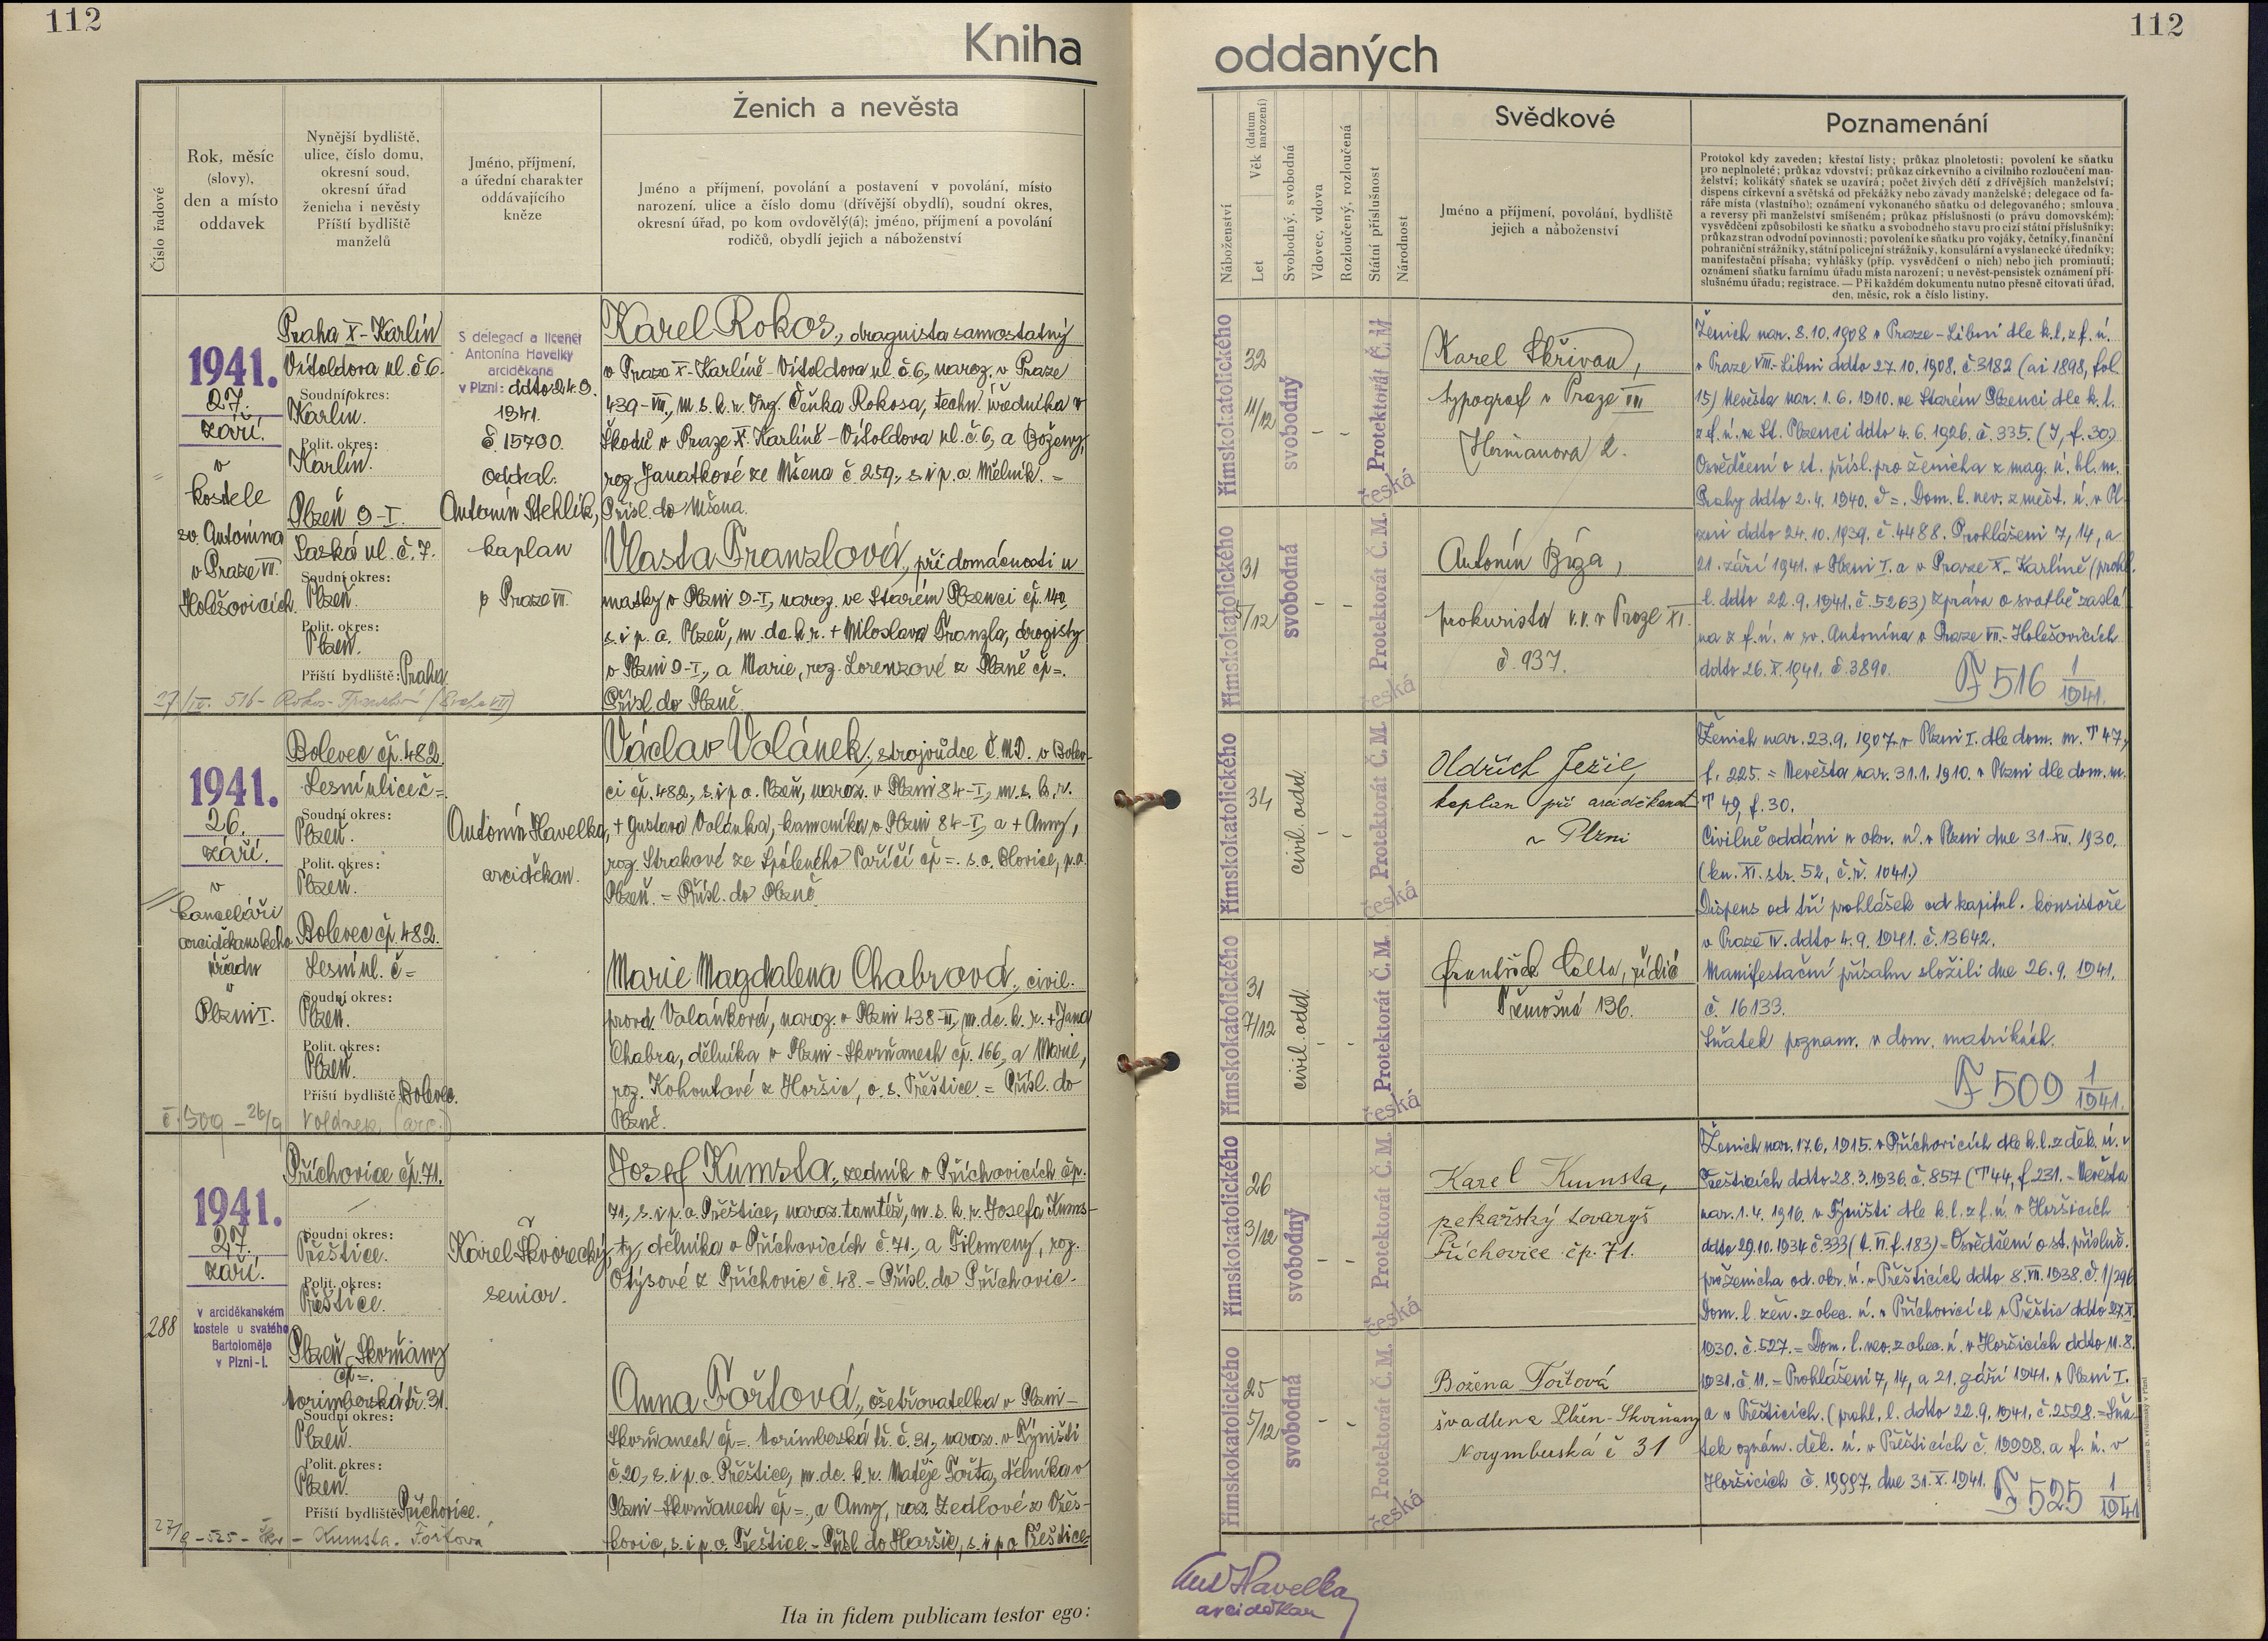 112
Kniha
Ženich a nevěsta
Číslo řadové
Rok, měsíc
(slovy),
den a místo
oddavek
Nynější bydliště,
ulice, číslo domu,
okresní soud,
okresní úřad
ženicha i nevěsty
Příští bydliště
manželů
Jméno, příjmení,
a úřední charakter
oddávajícího
kněze
Jméno a příjmení, povolání a postavení v povolání, místo
narození, ulice a číslo domu (dřívější obydlí), soudní okres,
okresní úřad, po kom ovdovělý(á); jméno, příjmení a povolání
rodičů, obydlí jejich a náboženství
1941.
27.
září.
v
kostele
sv. Antonína
v Praze VII.
Holešovicích.
Praha X - Karlín
Vítoldova ul. č 6.
Soudní okres:
Karlín.
Polit. okres:
Karlín.
Plzeň 9-I.
Saská ul. č. 7.
Soudní okres:
Plzeň.
Polit. okres:
Plzeň.
Příští bydliště: Praha.
S delegací a licencí
Antonína Havelky
arciděkana
v Plzni: ddto 24. 9.
1941.
č. 15790.
oddal:
Antonín Stehlík,
kaplan
v Praze VII.
Karel Rokos, droguista samostatný
v Praze X - Karlíně - Vítoldova ul. č 6, naroz. v Praze
439 - VII., m. s. k. r. Ing. Čeňka Rokosa, techn. úředníka v
Škodě v Praze X. Karlíně - Vítoldova ul. č. 6, a Boženy,
roz. Janatkové ze Mšena č 259, s. i p. o. Mělník. =
Přísl. do Mšena.
Vlasta Franzlová, při domácnosti u
matky v Plzni 9-I, naroz. ve Starém Plzenci čp. 140,
s. i p. o. Plzeň, m. dc. k. r. + Miloslava Franzla, drogisty
v Plzni 9-I., a Marie, roz. Lorenzové z Plzně čp =.
Přísl. do Plzně.
1941.
26.
září.
v
kanceláři
arciděkanského
úřadu
v
Plzni I.
Bolevec čp. 482.
Lesní ulice č =.
Soudní okres:
Plzeň.
Polit. okres:
Plzeň.
Bolevec čp. 482.
Lesní ul. č =
Soudní okres:
Plzeň.
Polit. okres:
Plzeň.
Příští bydliště: Bolevec.
č. 509 - 26/9 Volánek (arc.)
Antonín Havelka,
arciděkan.
Václav Volánek, strojvůdce Č. M. D. v Bolev-
ci čp. 482, s. i p. o. Plzeň, naroz. v Plzni 84-I, m. s. k. r.
+ Gustava Volánka, kameníka v Plzni 84-I, a + Anny,
roz. Strakové ze Spáleného Poříčí čp =. s. o. Blovice, p. o.
Plzeň. = Přísl. do Plzně.
Marie Magdalena Chabrová, civil.
provd. Volánková, naroz. v Plzni 438-III, m. dc. k. r. + Jana
Chabra, dělníka v Plzni - Skvrňanech čp. 166, a Marie,
roz. Kohoutové z Horšic, o. s. Přeštice. = Přísl. do
Plzně.
288
1941.
27.
září.
v arciděkanském
kostele u svatého
Bartoloměje
v Plzni-I.
Příchovice čp. 71.
Soudní okres:
Přeštice.
Polit. okres:
Přeštice.
Plzeň - Skvrňany
čp =.
Norimberská tř. 31.
Soudní okres:
Plzeň.
Polit. okres:
Plzeň.
Příští bydliště: Příchovice.
27/9 - 525 - - Kumsta - Fořtová
Karel Škvorecký,
senior.
Josef Kumsta, zedník v Příchovicích čp.
71, s. i p. o. Přeštice, naroz. tamtéž, m. s. k. r. Josefa Kums-
ty, dělníka v Příchovicích č. 71, a Filomeny, roz.
Otýsové z Příchovic č. 48. = Přísl. do Příchovic.
Anna Fořtová, ošetřovatelka v Plzni -
Skvrňanech čp =. Norimberská tř. č. 31, naroz. v Týništi
č. 20, s. i p. o. Přeštice, m. dc. k. r. Matěje Fořta, dělníka v
Plzni - Skvrňanech čp =, a Anny, roz. Zedlové z Vřes-
kovic, s. i p. o. Přeštice. = Přísl. do Horšic, s. i p. o. Přeštice.
Ita in fidem publicam testor ego:
112
oddaných
Náboženství
Let
Věk (datum narození)
Svobodný, svobodná
Vdovec, vdova
Rozloučený, rozloučená
Státní příslušnost
Národnost
Svědkové
Jméno a příjmení, povolání, bydliště
jejich a náboženství
Poznamenání
Protokol kdy zaveden; křestní listy; průkaz plnoletosti; povolení ke sňatku
pro neplnoleté; průkaz vdovství; průkaz církevního a civilního rozloučení man-
želství; kolikátý sňatek se uzavírá; počet živých dětí z dřívějších manželství;
dispens církevní a světská od překážky nebo závady manželské; delegace od fa-
ráře místa (vlastního); oznámení vykonaného sňatku od delegovaného; smlouva
a reversy při manželství smíšeném; průkaz příslušnosti (o právu domovském);
vysvědčení způsobilosti ke sňatku a svobodného stavu pro cizí státní příslušníky;
průkaz stran odvodní povinnosti; povolení ke sňatku pro vojáky, četníky, finanční
pohraniční strážníky, státní policejní strážníky, konsulární a vyslanecké úředníky;
manifestační přísaha; vyhlášky (příp. vysvědčení o nich) nebo jich prominutí;
oznámení sňatku farnímu úřadu místa narození; u nevěst-pensistek oznámení pří-
slušnému úřadu; registrace. — Při každém dokumentu nutno přesně citovati úřad,
den, měsíc, rok a číslo listiny.
římskokatolického
32
11/12
svobodný
Protektorát Č. M.
česká
Karel Skřivan,
typograf v Praze VII
Heřmanova 2.
římskokatolického
31
5/12
svobodná
Protektorát Č. M.
česká
Antonín Bíga,
prokurista v.v. v Praze XI.
č. 937.
Ženich nar. 8. 10. 1908 v Praze - Libni dle k. l. z f. ú.
v Praze VIII - Libni ddto 27. 10. 1908. č. 3182 (ai 1898, fol.
15) Nevěsta nar. 1. 6. 1910. ve Starém Plzenci dle k. l.
z f. ú. ve St. Plzenci ddto 4. 6. 1926. č. 335. (I, f. 30.)
Osvědčení o st. přísl. pro ženicha z mag. ú. hl. m.
Prahy ddto 2. 4. 1940. č =. Dom. l. nev. z měst. ú. v Pl-
zni ddto 24. 10. 1939. č. 4488. Prohlášeni 7, 14, a
21. září 1941. v Plzni I. a v Praze X. - Karlíně (prohl.
l. ddto 22. 9. 1941. č. 5263) Zpráva o svatbě zaslá-
na z f. ú. u sv. Antonína v Praze VII. - Holešovicích
ddto 26. X. 1941. č. 3890.
F 516 1/1941.
římskokatolického
34
civil. odd.
Protektorát Č. M.
česká
Oldřich Ježil,
kaplan při arciděkanst.
v Plzni
římskokatolického
31
7/12
civil. odd.
Protektorát Č. M.
česká
František Cólta, řídič
Třemošná 136.
Ženich nar. 23. 9. 1907. v Plzni I. dle dom. m. T 47,
f. 225. = Nevěsta nar. 31. 1. 1910. v Plzni dle dom. m.
T 49, f. 30.
Civilně oddáni u okr. ú. v Plzni dne 31. XII. 1930.
(kn. XI. str. 52, č. ř. 1041.)
Dispens od tří prohlášek od kapitul. konsistoře
v Praze IV. ddto 4. 9. 1941. č. 13642.
Manifestační přísahu složili dne 26. 9. 1941.
č. 16133.
Sňatek poznam. v dom. matrikách.
F 509 1/1941.
římskokatolického
26
3/12
svobodný
Protektorát Č. M.
česká
Karel Kumsta,
pekařský tovaryš
Příchovice čp. 71.
římskokatolického
25
5/12
svobodná
Protektorát Č. M.
česká
Božena Fořtová
švadlena Plzeň - Skvrňany
Norymberská č 31
Ženich nar. 17. 6. 1915. v Příchovicích dle k. l. z děk. ú. v
Přešticích ddto 28. 3. 1936. č. 857 (T 44, f. 231. = Nevěsta
nar. 1. 4. 1916. v Týništi dle k. l. z f. ú. v Horšicích
ddto 29. 10. 1934 č. 333 (t. VI. f. 183) = Osvědčení o st. přísluš.
pro ženicha od okr. ú. v Přešticích ddto 8. VII. 1938. č. 1/296
Dom. l. žen. z obec. ú. v Příchovicích v Přeštic ddto 27. X.
1930. č. 527. = Dom. l. nev. z obec. ú. v Horšicích ddto 11. 8.
1931. č. 11. = Prohlášeni 7, 14, a 21. září 1941. v Plzni I.
a v Přešticích. (prohl. l. ddto 22. 9. 1941. č. 2528. = Sňa-
tek oznám. děk. ú. v Přešticích č. 19998. a f. ú. v
Horšicích č. 19997. dne 31. X. 1941.
F 525 1/1941
Ant Havelka
arciděkan